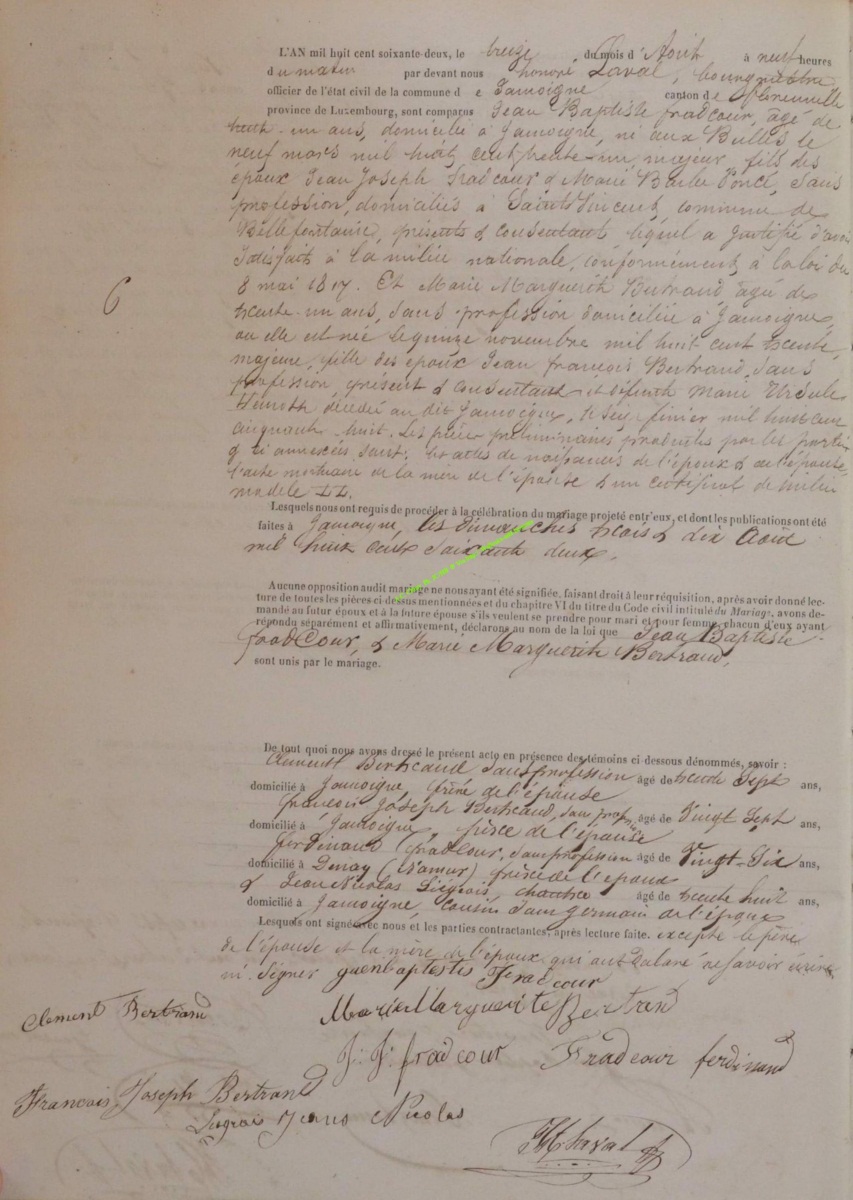 L'AN mil huit cent soixante-deux, le treize du mois d'Août à neuf heures
du matin par devant nous honoré Laval, bourgmestre
officier de l'état civil de la commune de Jamoigne canton de Florenville
province de Luxembourg, sont comparus Jean Baptiste fradcour, âgé de
trente-un ans, domicilié à Jamoigne, né aux Bulles le
neuf mars mil huit cent trente-un, majeur, fils des
époux Jean Joseph fradcour & Marie Barbe Poncé, sans
profession, domiciliés à Saint Vincent, commune de
Bellefontaine, présents & consentants, lequel a justifié d'avoir
satisfait à la milice nationale, conformément à la loi du
8 mai 1817. Et Marie Marguerite Bertrand, âgée de
6
trente-un ans, sans profession domiciliée à Jamoigne,
où elle est née le quinze novembre mil huit cent trente,
majeure, fille des époux Jean françois Bertrand, sans
profession, présent & consentant et défunte Marie Ursule
décédée au dit Jamoigne, le seize février mil huit cent
cinquante-huit. Les pièces préliminaires produites par les parties
& ci annexées sont: les actes de naissances de l'époux & de l'épouse,
l'acte mortuaire de la mère de l'épouse & un certificat de milice
modèle LL.
Lesquels nous ont requis de procéder à la célébration du mariage projeté entr'eux, et dont les publications ont été
faites à Jamoigne, les dimanches trois & dix Août
mil huit cent soixante deux.
Aucune opposition audit mariage ne nous ayant été signifiée, faisant droit à leur réquisition, après avoir donné lec-
ture de toutes les pièces ci-dessus mentionnées et du chapitre VI du titre du Code civil intitulé du Mariage, avons de-
mandé au futur époux et à la future épouse s'ils veulent se prendre pour mari et pour femme, chacun d'eux ayant
répondu séparément et affirmativement, déclarons au nom de la loi que Jean Baptiste
fradcour, & Marie Marguerite Bertrand,
sont unis par le mariage.
De tout quoi nous avons dressé le présent acte en présence des témoins ci-dessous dénommés, savoir :
Clement Bertrand sans profession âgé de trente sept ans,
domicilié à Jamoigne, frère de l'épouse
françois Joseph Bertrand, sans profession âgé de Vingt Sept ans,
domicilié à Jamoigne, frère de l'épouse
ferdinand fradcour, sans profession âgé de Vingt-Six ans,
domicilié à (Namur) frère de l'époux
& Jean Nicolas Liégeois, chantre âgé de trente huit ans,
domicilié à Jamoigne, cousin germain de l'époux
Lesquels ont signé avec nous et les parties contractantes, après lecture faite. excepté le père
de l'épouse et la mère de l'époux qui ont déclaré ne savoir écrire
ni signer
Fradcour
Clement Bertrand
Marie Marguerite Bertrand
J: J: fradcour Fradcour ferdinand
Francois Joseph Bertrand
Nicolas
H Laval